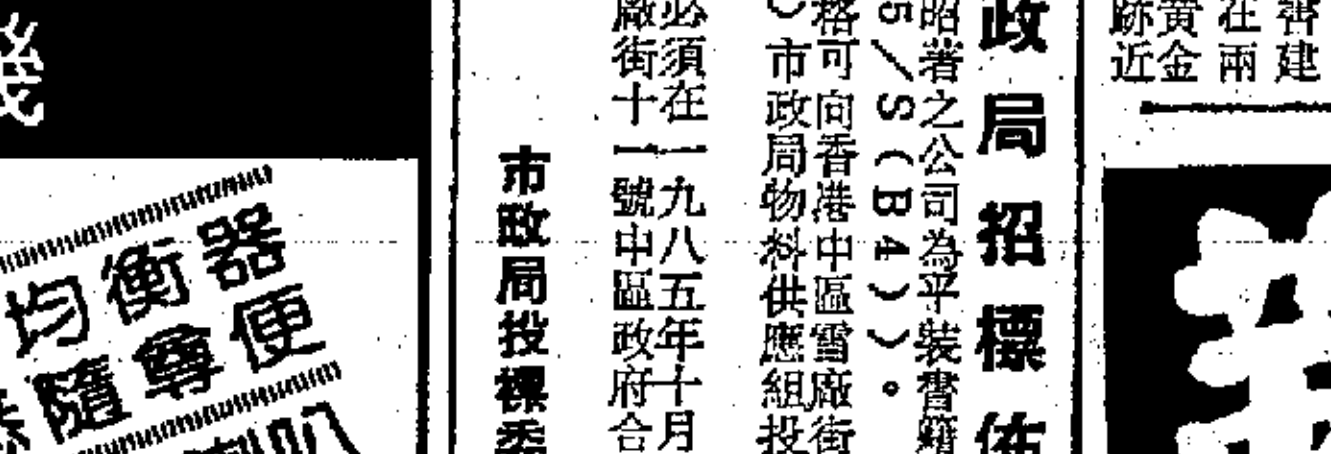 書建
在兩
黃金
跡近
政局招標佈
昭著之公司為平裝書籍
5／S（B4））。
格可向香港中區雪廠街
）市政局物料供應組投
必須在一九八五年十月
廠街十一號中區政府合
市政局投標委
均衡器
隨尊便